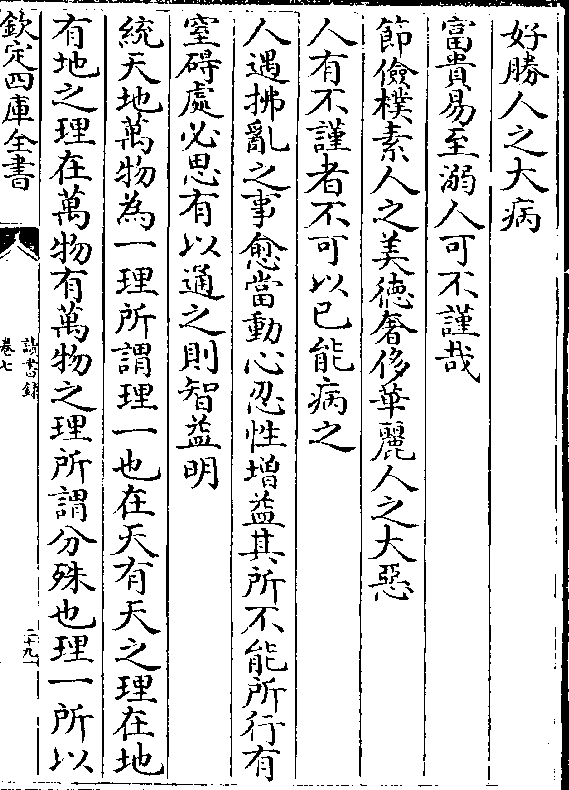 好勝人之大病
富貴易至溺人可不謹哉
節儉樸素人之美徳奢侈華麗人之大惡
人有不謹者不可以已能病之
人遇拂亂之事愈當動心忍性增益其所不能所行有
窒碍處必思有以通之則智益明
統天地萬物為一理所謂理一也在天有天之理在地
有地之理在萬物有萬物之理所謂分殊也理一所以
欽定四庫全書
讀書録
卷七